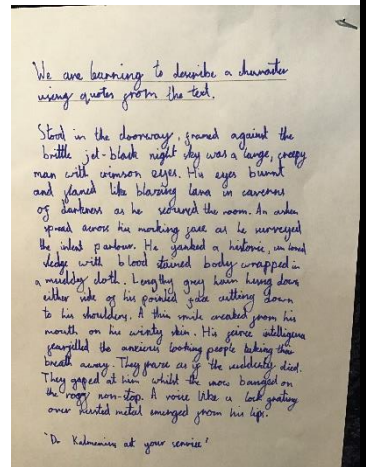 We are learning to describe a character
using quotes from the text.
Stood in the doorway, framed against the
brittle jet-black night sky was a large, creepy
man with crimson eyes. His eyes burnt
and flamed like blazing lava in caverns
of darkness as he scoured the room. An ashen
spread across his face as he surveyed
the silent parlour. He yanked a historic,
sledge with blood stained body wrapped in
a muddy cloth. Lengthy grey hair hung down
either side of his pointed face cutting down
to his shoulders. A thin smile creaked from his
mouth on his wintry skin. His feirce intelligence
the anxious looking people taking thar
breath away. They froze as if the suddenly died.
They gaped at him whilst the snow banged on
the roof non-stop. A voice like a lock grating
over rusted metal emerged from his lip.
"Dr Kalmenius at your service'